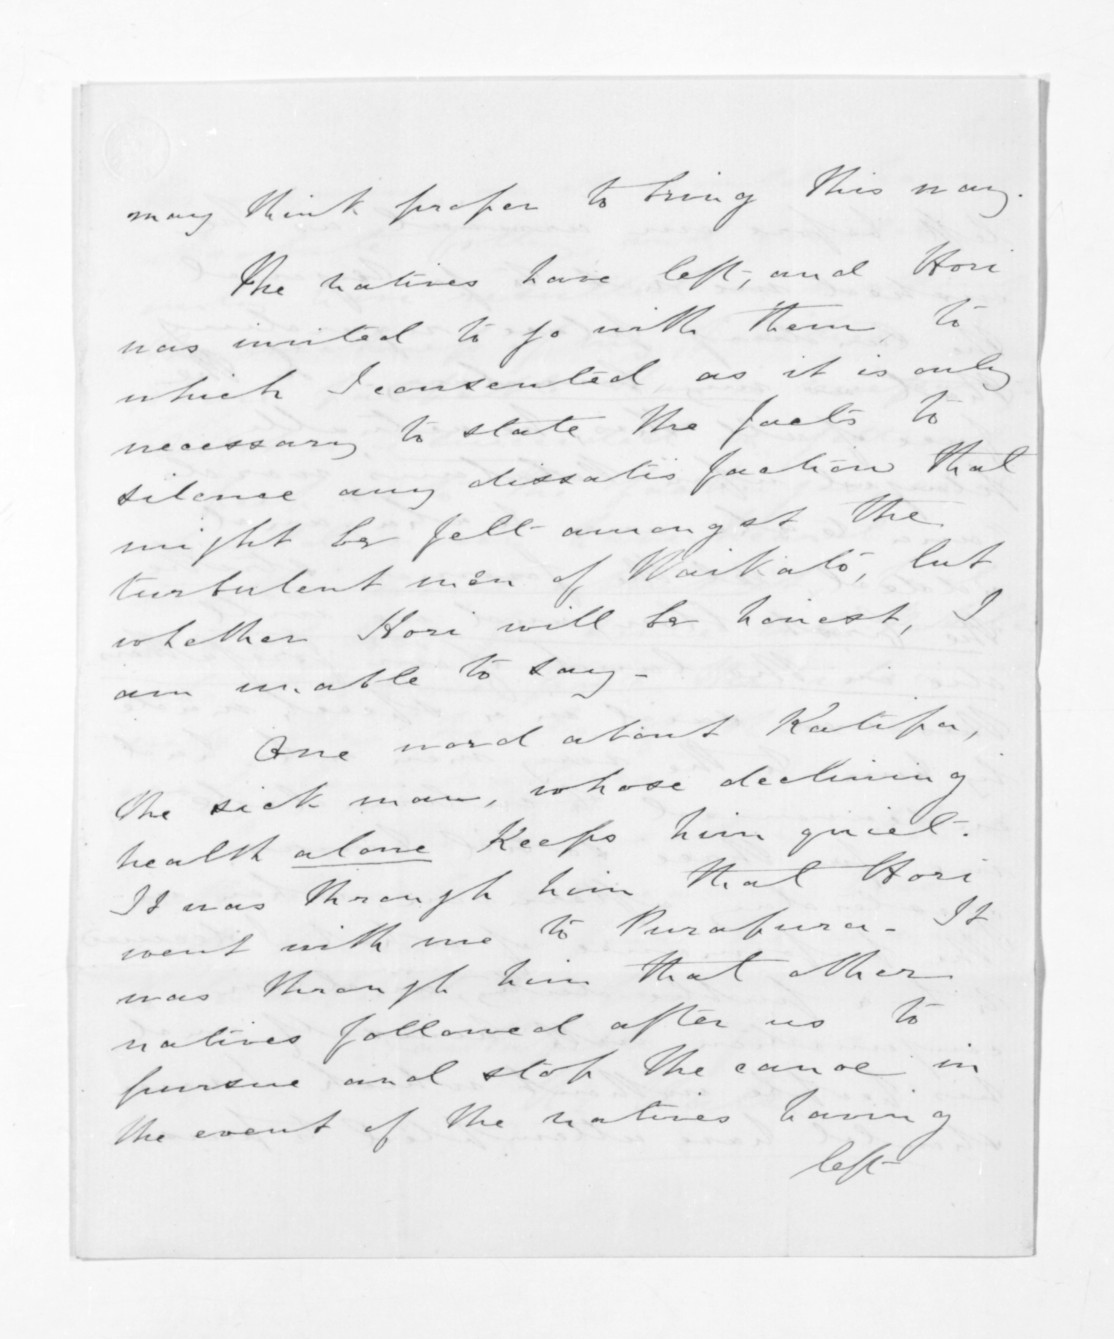 may think proper to bring this way.
The natives have left, and Hori
was invited to go with them, to
which I consented as it is only
necessary to state the facts to
silence any dissatisfaction that
might be felt amongst the
turbulent men of Waikato, but
whether Hori will be honest, I
am unable to say -
One word about Katipa,
the sick man, whose declining
health alone keeps him quiet.
It was through him that Hori
went with me to Purapura - It
was through him that other
natives followed after us to
pursue and stop the canoe in
the event of the natives having
left